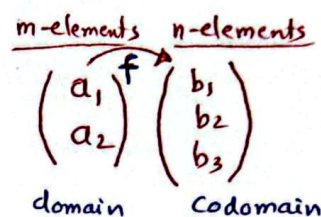 m-elements n-elements
f
a₁ b₁
a₂ b₂
b₃
domain Codomain